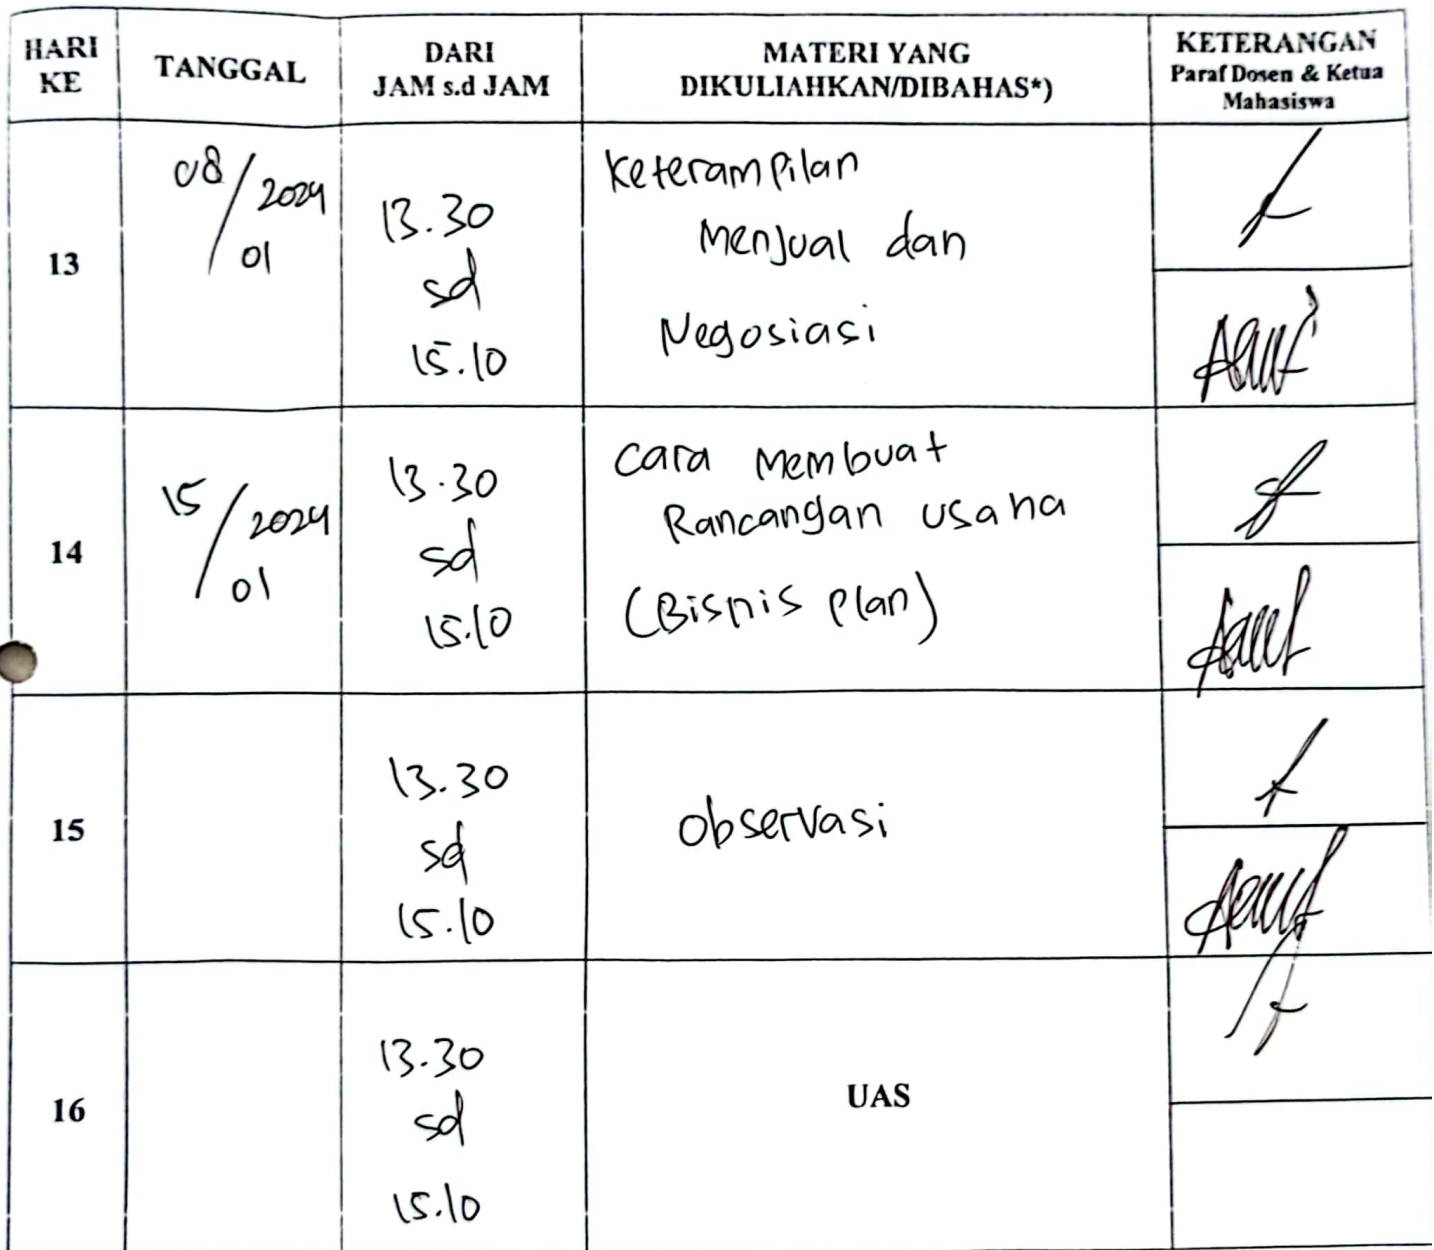 HARI KE
TANGGAL
DARI
JAM s.d JAM
MATERI YANG
DIKULIAHKAN/DIBAHAS*)
KETERANGAN
Paraf Dosen & Ketua
Mahasiswa
13
08/2024
01
13.30
sd
15.10
Keterampilan
Menjual dan
Negosiasi
14
15/2024
01
13.30
sd
15.10
Cara Membuat
Rancangan usaha
(Bisnis Plan)
15
13.30
sd
15.10
Observasi
16
13.30
sd
15.10
UAS